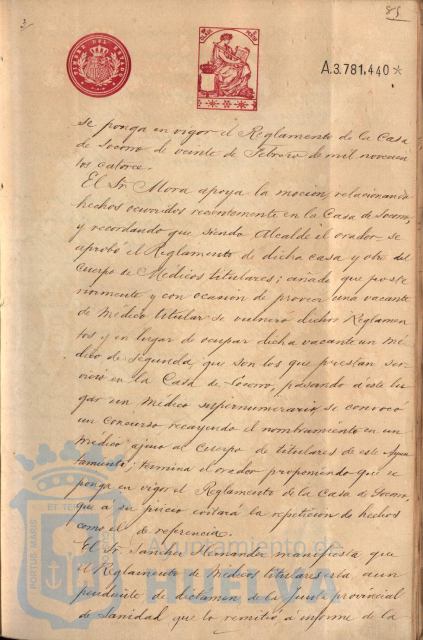 85
TIMBRE DEL ESTADO
A.3.781,440*
se ponga en vigor el Reglamento de la Casa
de Socorro de veinte de Febrero de mil novecien
tos catorce.
El Sr. Mora apoya la moción, relacionando
hechos ocurridos recientemente en la Casa de Socorro,
y recordando que siendo Alcalde el orador se
aprobó el Reglamento de dicha casa y otro del
Cuerpo de Médicos titulares; añade que poste
riormente y con ocasión de proveer una vacante
de Médico titular se vulneró dichos Reglamen
tos y en lugar de ocupar dicha vacante un mé
dico de segunda, que son los que prestan ser
vicio en la Casa de Socorro, pasando a este lu
gar un Médico supernumerario, se convocó
un Concurso recayendo el nombramiento en un
médico ajeno al Cuerpo de titulares de este Ayun
tamiento; termina el orador proponiendo que se
ponga en vigor el Reglamento de la Casa de Socorro,
que a su juicio evitará la repetición de hechos
como el de referencia.
El Sr. Sánchez Hernández manifiesta que
el Reglamento de Médicos titulares está aun
pendiente de dictamen de la Junta provincial
de Sanidad que lo remitió a informe de la
PORTUS MARIS ET TER
Ayuntamiento de
HUELVA